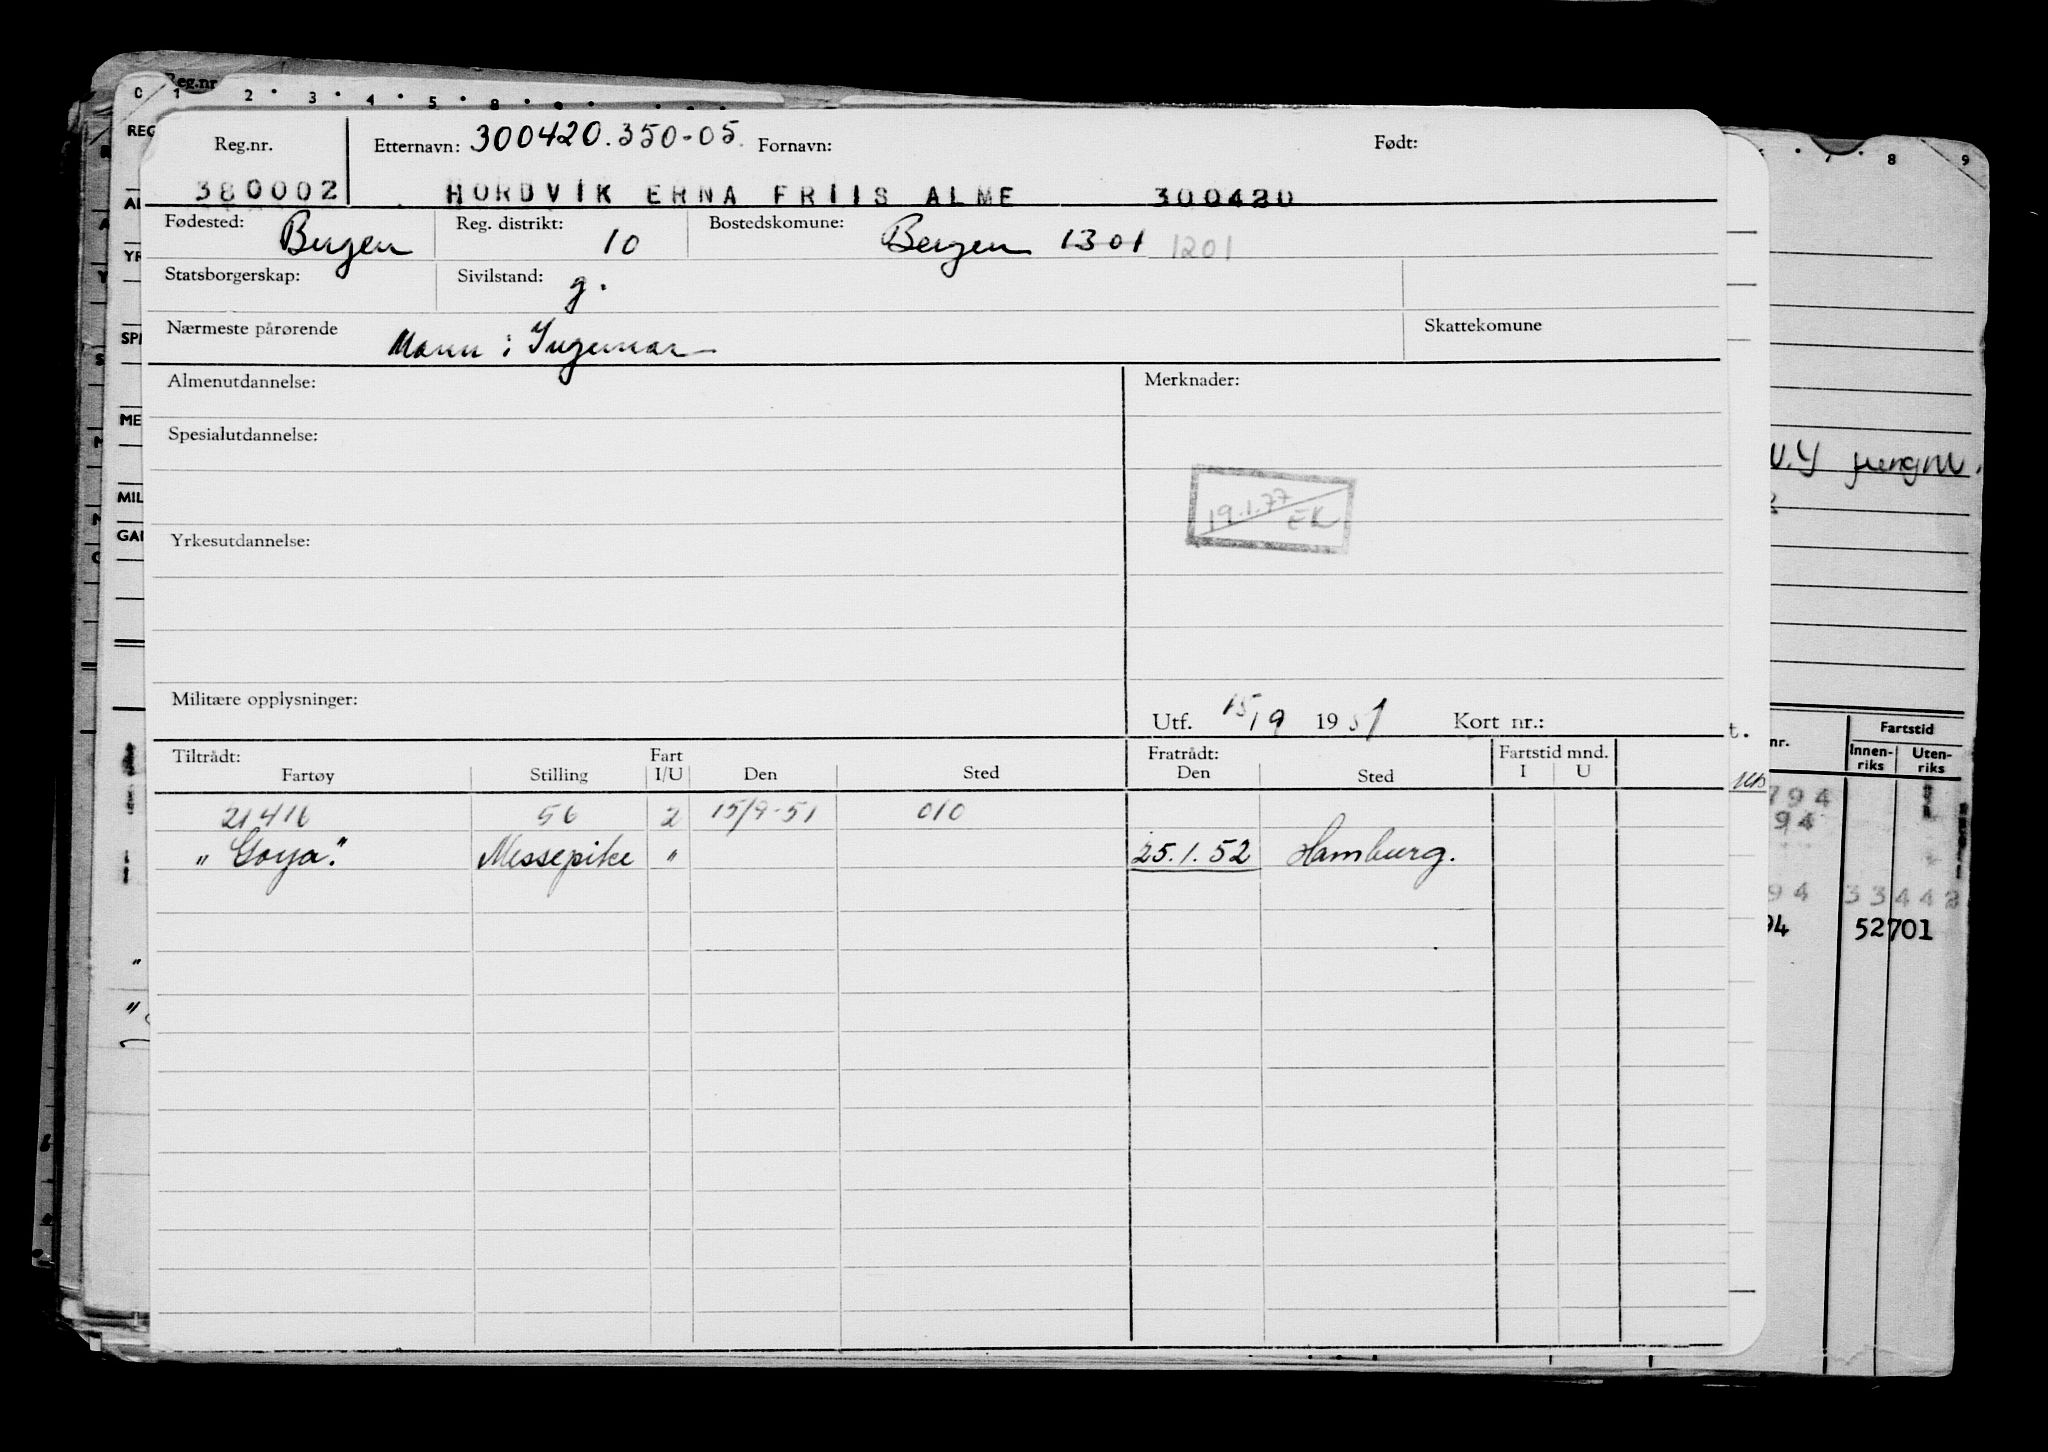 Reg.nr.
0 1 2 3 4 5 8 9
7 8 9
REG
Reg.nr. Etternavn: 300420.350-05. Fornavn: Født:
380002 HORDVIK ERNA FRIIS ALME 300420
Fødested: Bergen Reg. distrikt: 10 Bostedskomune: Bergen 1301 1201
Statsborgerskap: Sivilstand: g.
Nærmeste pårørende Mann: Ingemar Skattekomune
Almenutdannelse: Merknader:
Spesialutdannelse:
19.1.77 EK
Yrkesutdannelse:
Militære opplysninger: Utf. 15/9 1951 Kort nr.:
Tiltrådt: Fart Fratrådt: Fartstid mnd.
Fartøy Stilling I/U Den Sted Den Sted I U
21416 56 2 15/9-51 010
"Goya". Messepike " 25.1.52 Hamburg.
YR
SPI
ME
MIL
GAI
N.Y
nr. Fartstid
Innen-riks Uten-riks
794
94
94 33442
94 52701